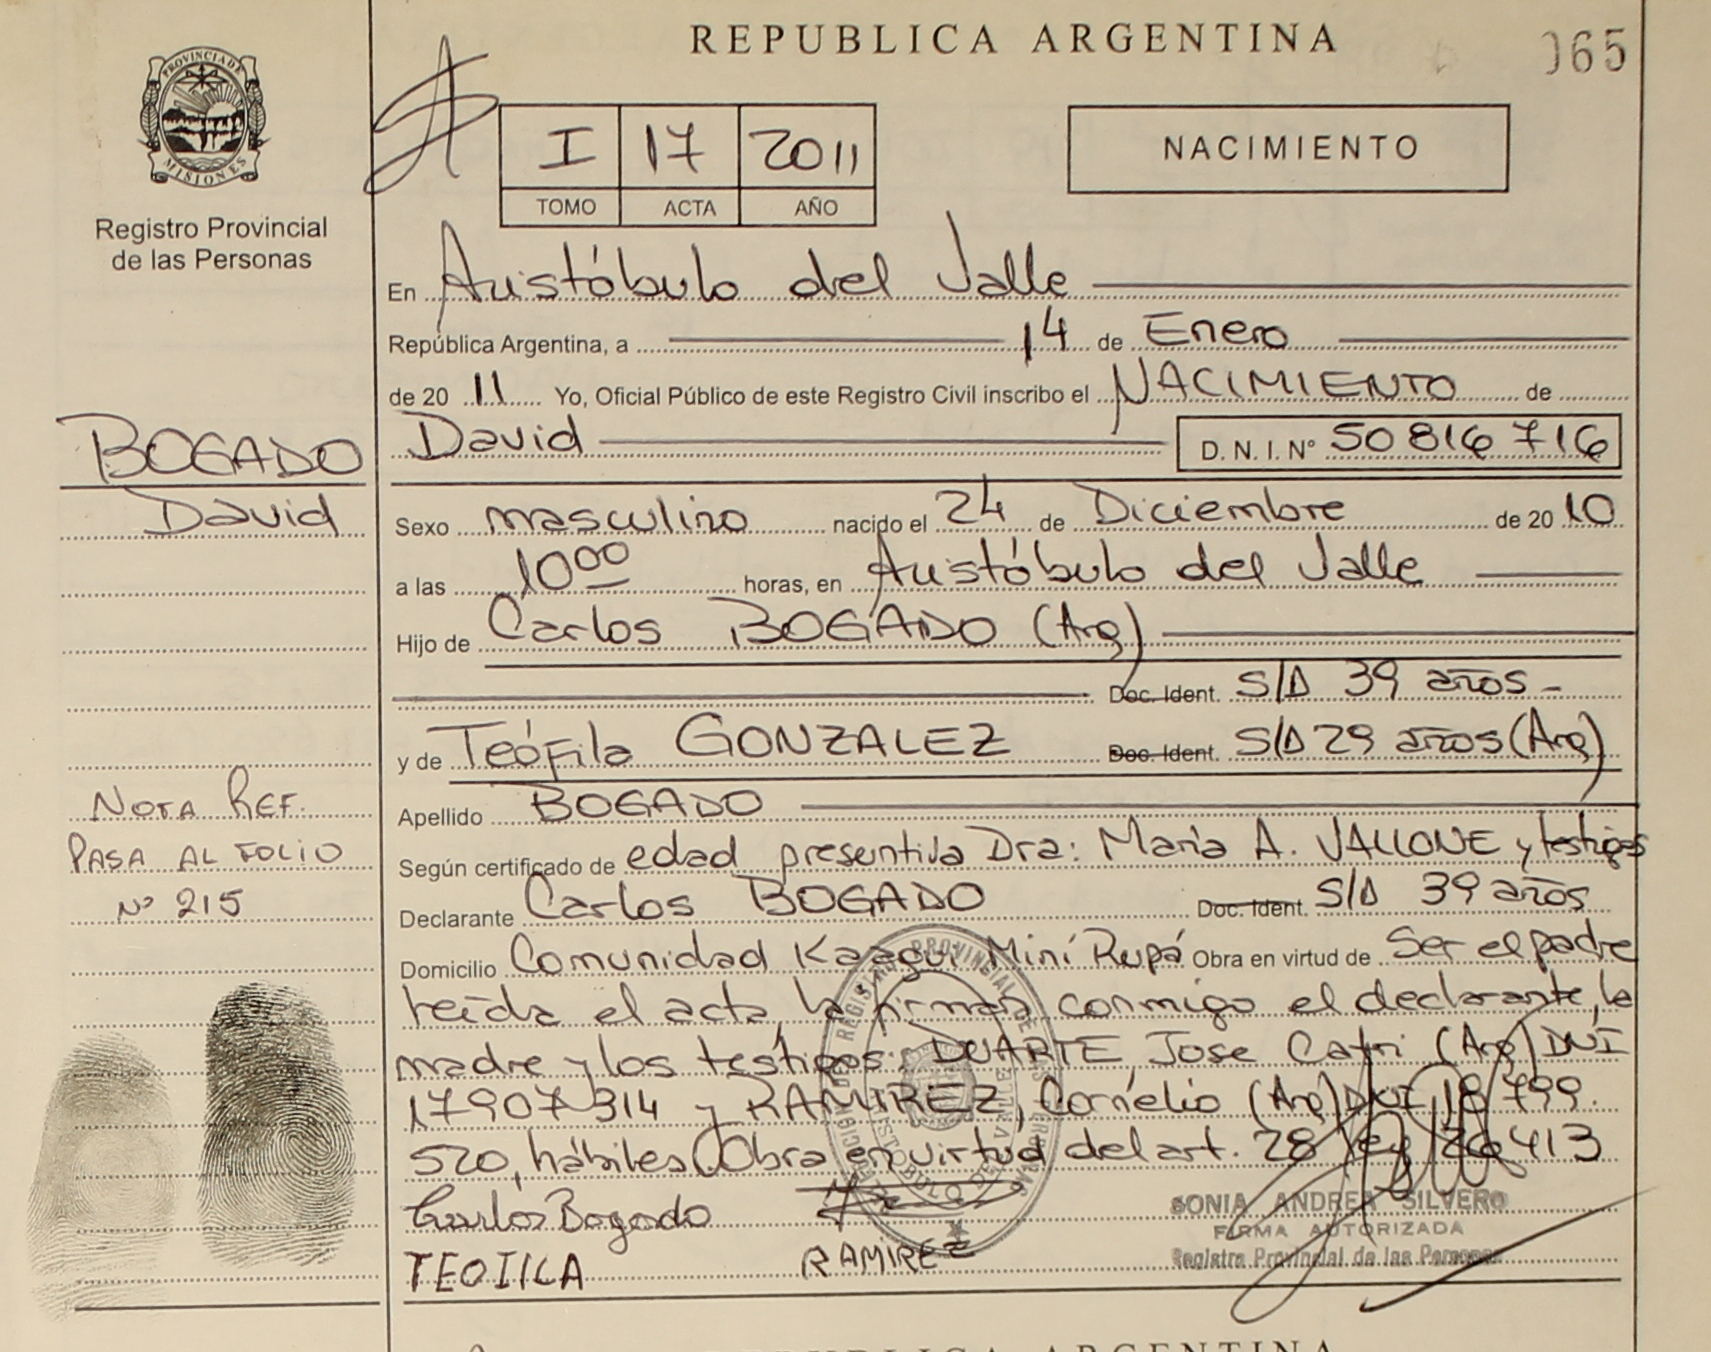 REPUBLICA ARGENTINA
065
PROVINCIA DE
MISIONES
Registro Provincial
de las Personas
I 17 2011
TOMO ACTA AÑO
NACIMIENTO
En Aristóbulo del Valle
República Argentina, a 14 de Enero
de 20 11 Yo, Oficial Público de este Registro Civil inscribo el NACIMIENTO de
David D. N. I. N° 50 816 716
BOGADO
David
Sexo masculino nacido el 24 de Diciembre de 20 10
a las 10 00 horas, en Aristóbulo del Valle
Hijo de Carlos BOGADO (Arg)
Doc. Ident. S/D 39 años -
y de Teófila GONZALEZ Doc. Ident. S/D 29 años (Arg)
Apellido BOGADO
Según certificado de edad presentiva Dra: María A. VALLONE y testigos
Declarante Carlos BOGADO Doc. Ident. S/D 39 años
Domicilio Comunidad Kaagui Miní Rupá Obra en virtud de Ser el padre
leída el acta, la firman conmigo el declarante, la
madre y los testigos: DUARTE Jose Catri (Arg) DNI
17907314 y RAMIREZ, Cornelio (Arg) DNI 18 799.
520, hábiles. Obra en virtud del art. 28 ley 26413
NOTA REF.
PASA AL FOLIO
Nº 215
Carlos Bogado
TEOIILA
RAMIREZ
SONIA ANDREA SILVERO
FIRMA AUTORIZADA
Registro Provincial de las Personas
REPUBLICA ARGENTINA